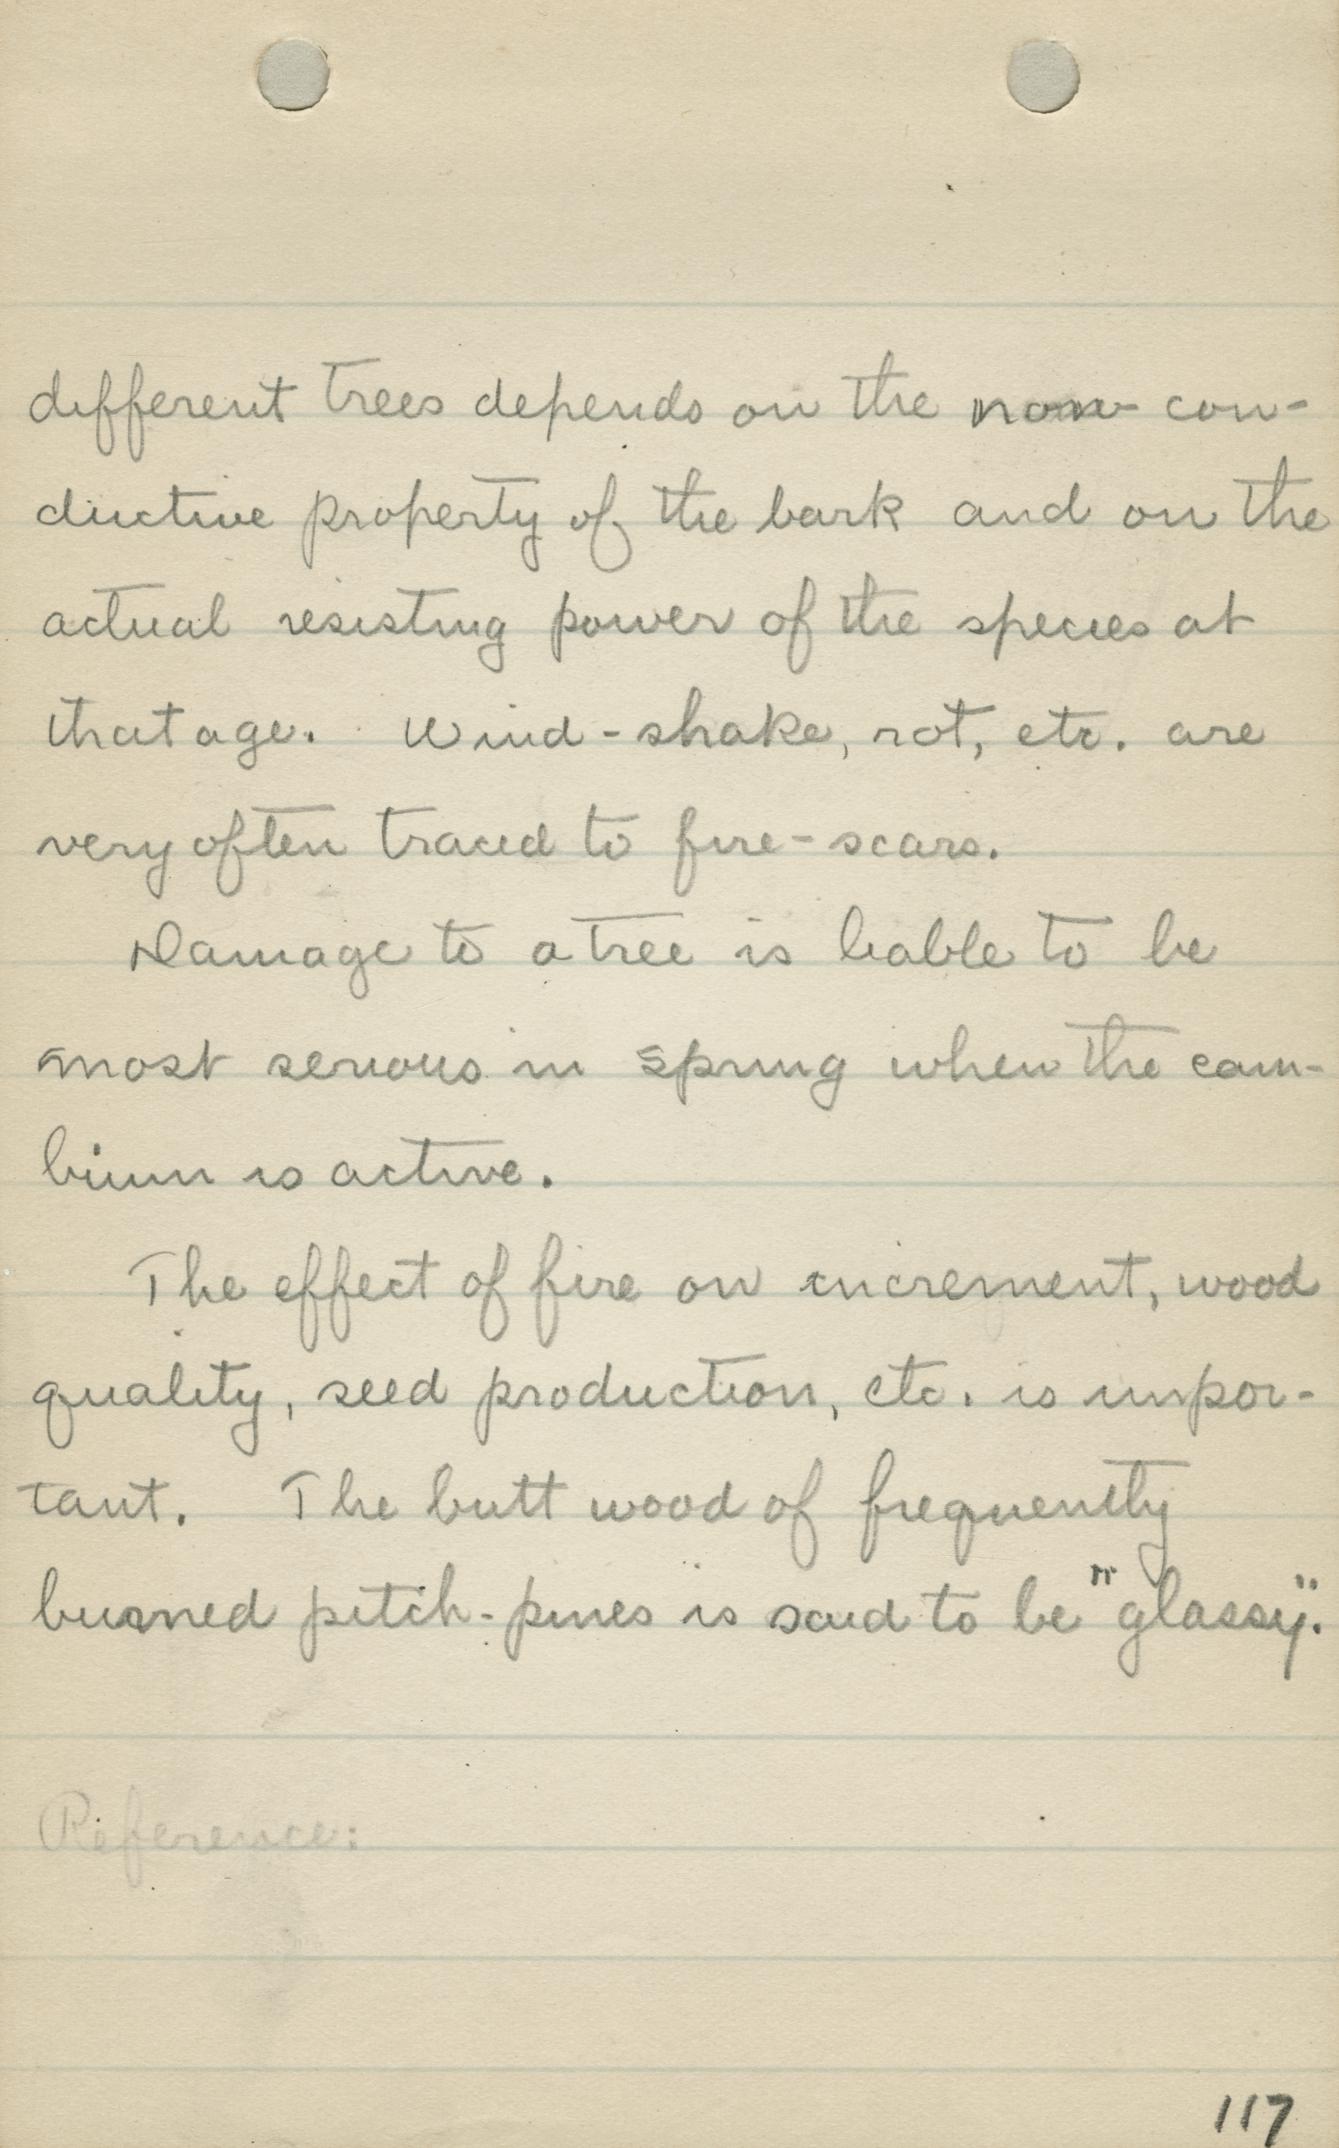 different trees depends on the non-con-
ductive property of the bark and on the
actual resisting power of the species at
that age. Wind-shake, rot, etc. are
very often traced to fire-scars.
Damage to a tree is liable to be
most serious in spring when the cam-
bium is active.
The effect of fire on increment, wood
quality, seed production, etc. is impor-
tant. The butt wood of frequently
burned pitch-pines is said to be "glassy".
Reference:
117